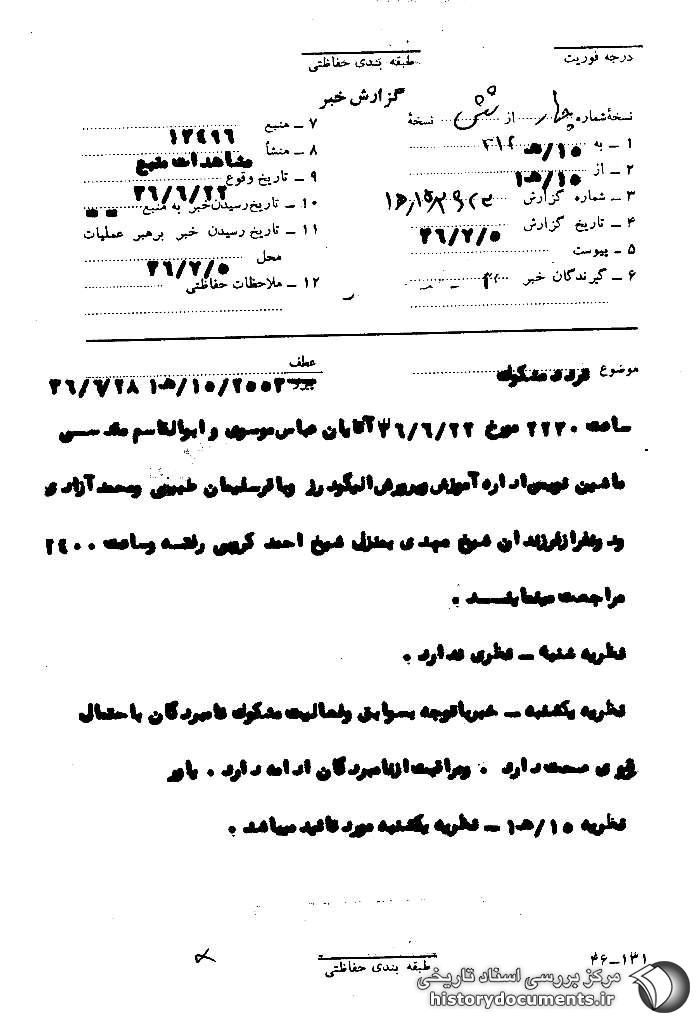 درجه فوریت
طبقه بندی حفاظتی
گزارش خبر
نسخهٔ شماره چهار از شش نسخهٔ
۱ ـ به ۳۱۲
۲ ـ از ۱۰/ه‍۱
۳ ـ شماره گزارش
۴ ـ تاریخ گزارش ۳۶/۷/۵
۵ ـ پیوست
۶ ـ گیرندگان خبر
۷ ـ منبع ۱۲۴۹۶
۸ ـ منشأ مشاهدات منبع
۹ ـ تاریخ وقوع ۳۶/۶/۲۲
۱۰ ـ تاریخ رسیدن خبر به منبع
۱۱ ـ تاریخ رسیدن خبر برهبر عملیات
محل ۳۶/۷/۵
۱۲ ـ ملاحظات حفاظتی
موضوع تردد مشکوک
عطف
۱۰/۲۰۰۳/ه‍۱ ۳۶/۶/۲۸
ساعت ۲۲۳۰ مورخ ۳۶/۶/۲۲ آقایان عباس موسوی و ابوالقاسم مقدسی
ماشین نویس اداره آموزش وپرورش الیگودرز وباقرسلیمان طبیبی ومحمد آزادی
ودونفرازفرزندان شیخ مهدی بمنزل شیخ احمد کروبی رفتـه وساعت ۲۴۰۰
مراجعت مینماینــد .
نظریه شنبه ـ نظری ندارد .
نظریه یکشنبه ـ خبرباتوجه بسوابق وفعالیت مشکوک نامبردگان باحتمال
قوی صحت دارد . ومراقبت ازنامبردگان ادامه دارد . یاور
نظریه ۱۰/ه‍۱ ـ نظریه یکشنبه مورد تائید میباشد .
طبقه بندی حفاظتی
۴۶-۱۳۱
مرکز بررسی اسناد تاریخی
historydocuments.ir